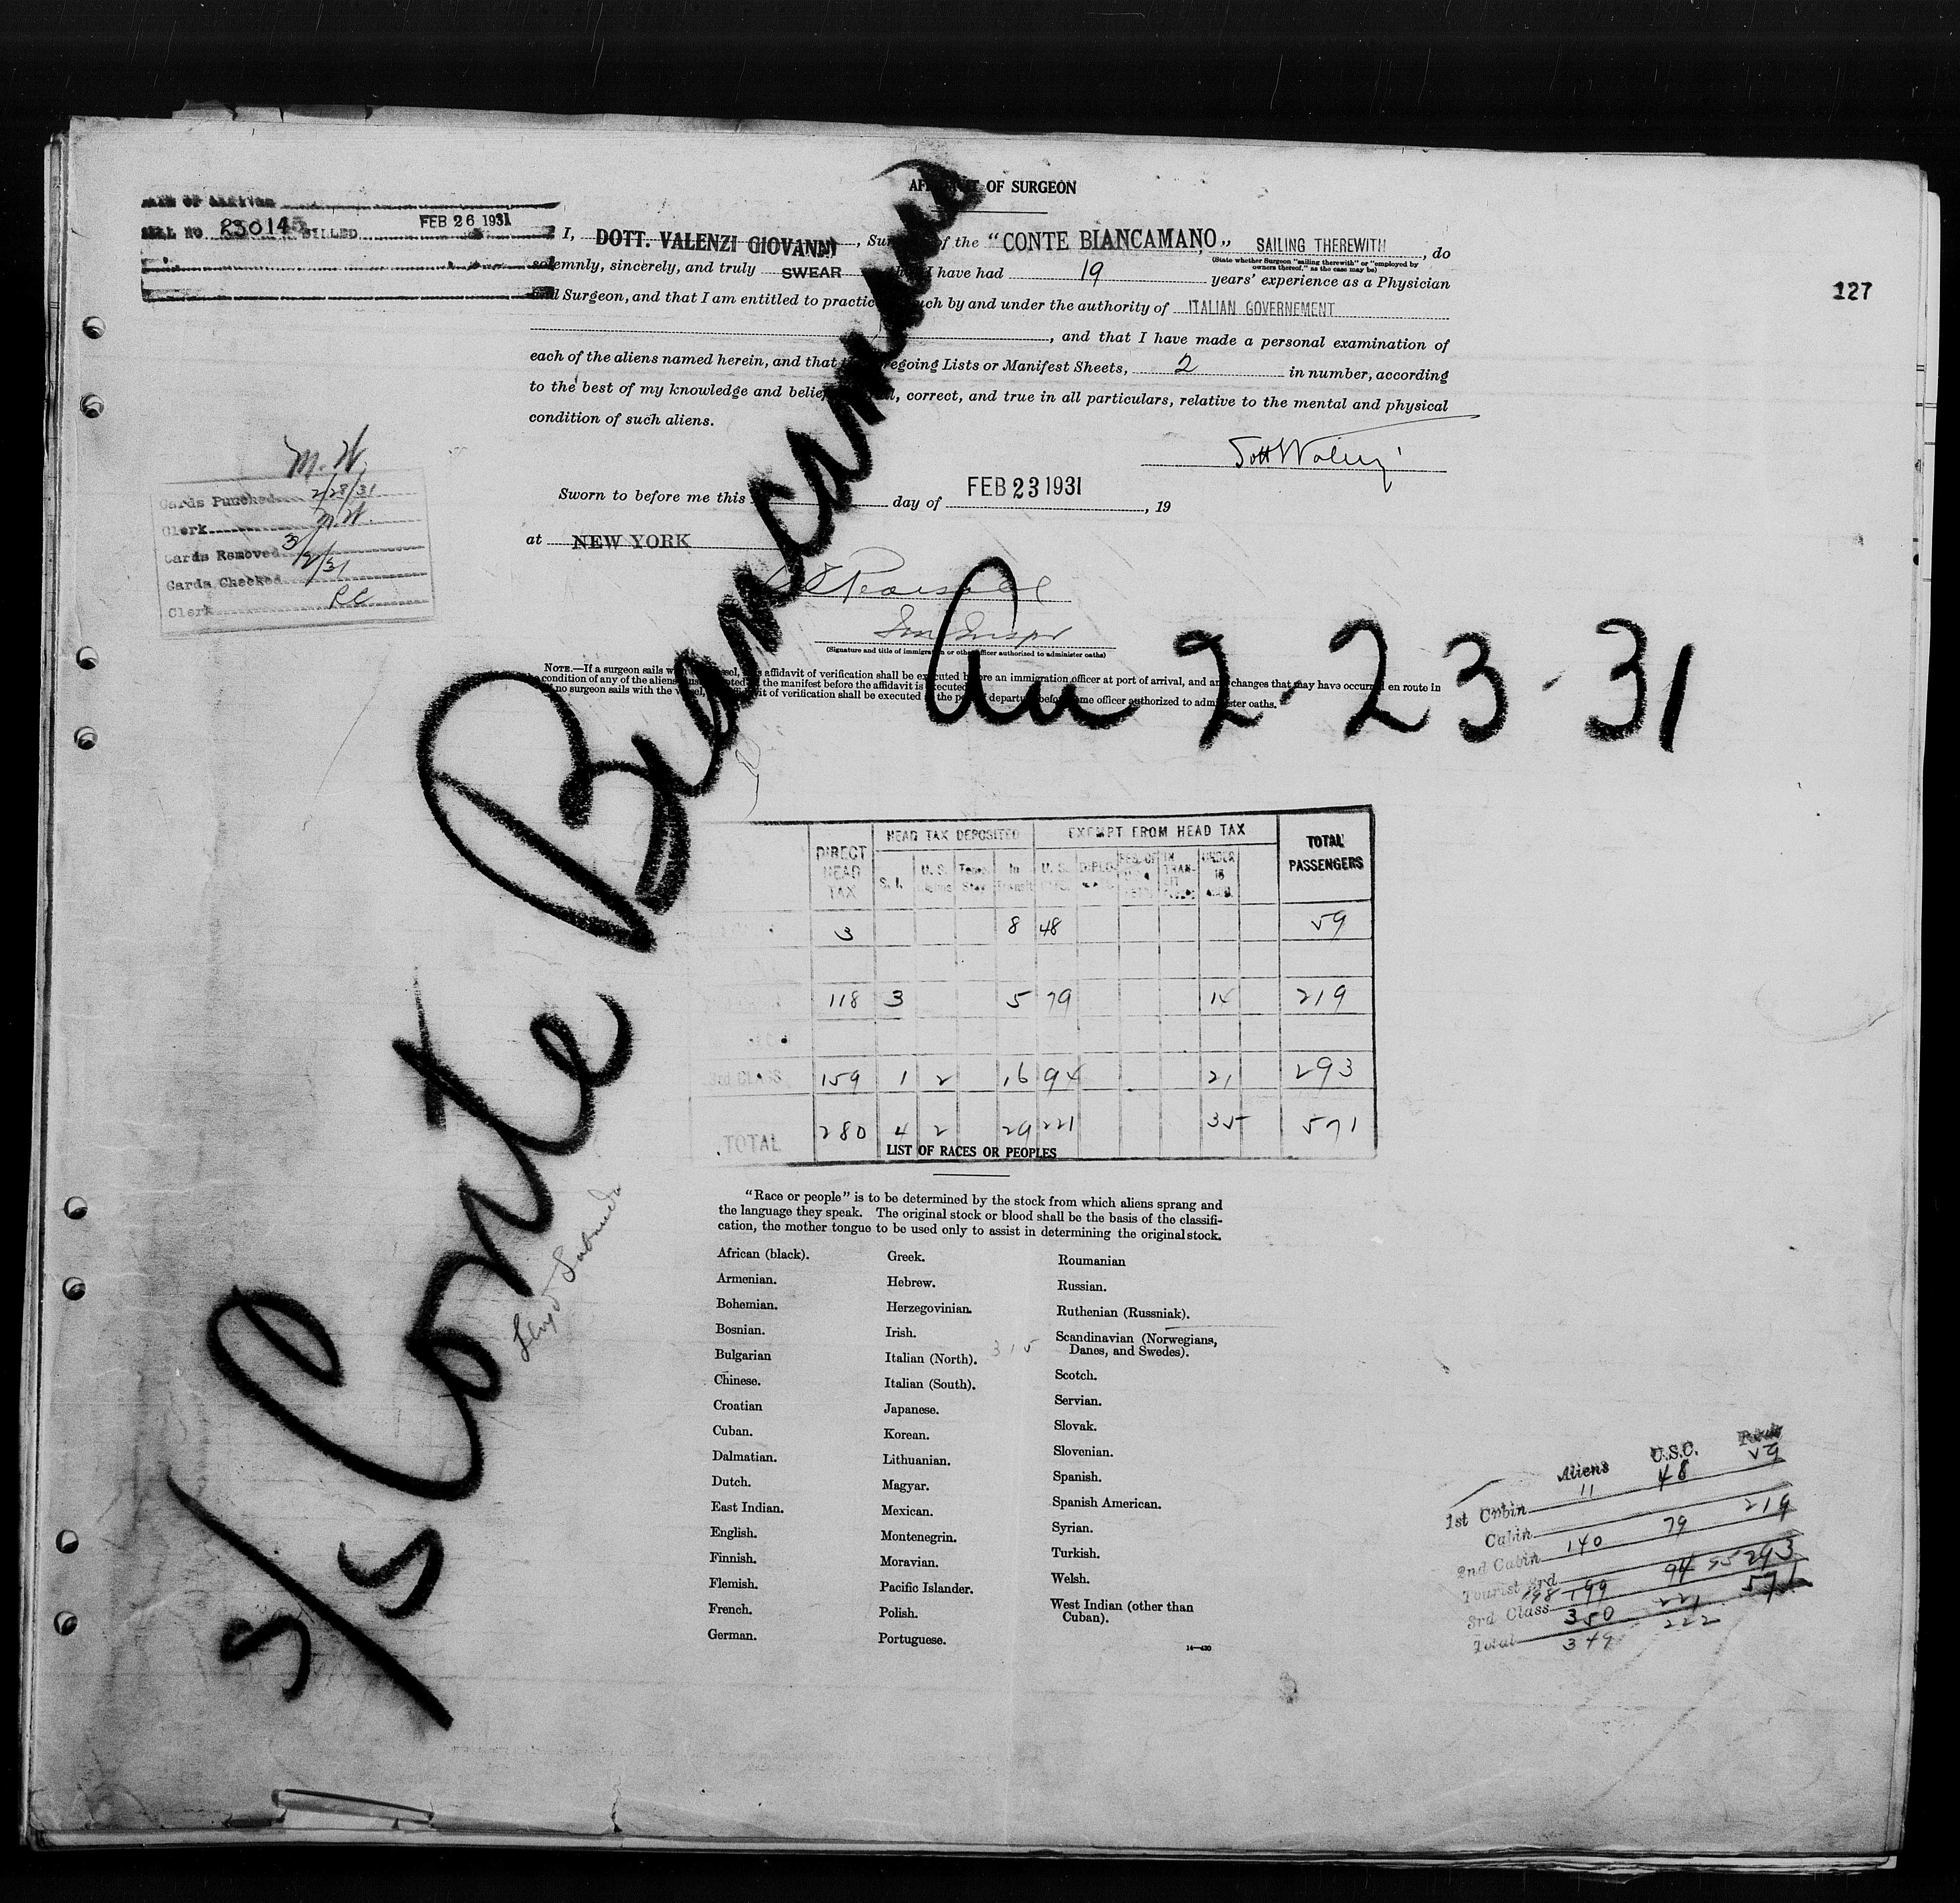 AFFIDAVIT OF SURGEON
DATE OF ARRIVAL
BILL NO 230145 BILLED FEB 26 1931
127
I, DOTT. VALENZI GIOVANNI, Surgeon of the "CONTE BIANCAMANO", SAILING THEREWITH, do
(State whether Surgeon "sailing therewith" or "employed by
owners thereof," as the case may be)
solemnly, sincerely, and truly SWEAR that I have had 19 years' experience as a Physician
and Surgeon, and that I am entitled to practice as such by and under the authority of ITALIAN GOVERNEMENT
, and that I have made a personal examination of
each of the aliens named herein, and that the foregoing Lists or Manifest Sheets, 2 in number, according
to the best of my knowledge and belief, are full, correct, and true in all particulars, relative to the mental and physical
condition of such aliens.
Sworn to before me this day of FEB 23 1931, 19
at NEW YORK
(Signature and title of immigration or other officer authorised to administer oaths)
NOTE.—If a surgeon sails with the vessel, this affidavit of verification shall be executed before an immigration officer at port of arrival, and any changes that may have occurred en route in
condition of any of the aliens must be noted on the manifest before the affidavit is executed.
no surgeon sails with the vessel, affidavit of verification shall be executed at the port of departure before some officer authorized to administer oaths.
M. W.
Cards Punched 2/28/31
Clerk M.W.
Cards Removed
Cards Checked 3/2/31
Clerk RC
S/S Conte Biancamano
Au 2-23-31
DIRECT HEAD TAX
HEAD TAX DEPOSITED
EXEMPT FROM HEAD TAX
TOTAL PASSENGERS
S. I. U. S. Temp. Stay In Transit U. S. DIPLO IN TRANSIT UNDER 16
3 8 48 59
118 3 5 79 14 219
3rd CLASS 159 1 2 16 94 21 293
TOTAL 280 4 2 29 221 35 571
LIST OF RACES OR PEOPLES
"Race or people" is to be determined by the stock from which aliens sprang and
the language they speak. The original stock or blood shall be the basis of the classifi-
cation, the mother tongue to be used only to assist in determining the original stock.
African (black).
Armenian.
Bohemian.
Bosnian.
Bulgarian
Chinese.
Croatian
Cuban.
Dalmatian.
Dutch.
East Indian.
English.
Finnish.
Flemish.
French.
German.
Greek.
Hebrew.
Herzegovinian.
Irish.
Italian (North). 315
Italian (South).
Japanese.
Korean.
Lithuanian.
Magyar.
Mexican.
Montenegrin.
Moravian.
Pacific Islander.
Polish.
Portuguese.
Roumanian
Russian.
Ruthenian (Russniak).
Scandinavian (Norwegians,
Danes, and Swedes).
Scotch.
Servian.
Slovak.
Slovenian.
Spanish.
Spanish American.
Syrian.
Turkish.
Welsh.
West Indian (other than
Cuban).
14—430
Lloyd Sabaudo
Aliens U.S.C. Total
1st Cabin 11 48 59
Cabin
2nd Cabin 140 79 219
Tourist 3rd
3rd Class 198 199 94 95 293
Total 350 221 571
349 222